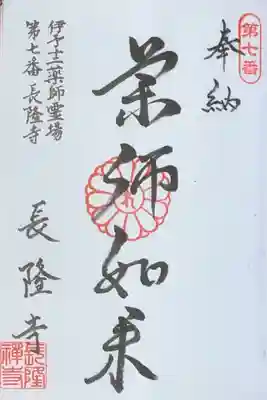 第七番
奉納
薬師如来
伊予十二薬師霊場
第七番 長隆寺
長隆寺
長隆禅寺